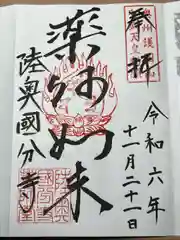 奉拝
令和六年
十一月二十一日
薬師如来
陸奥國分寺